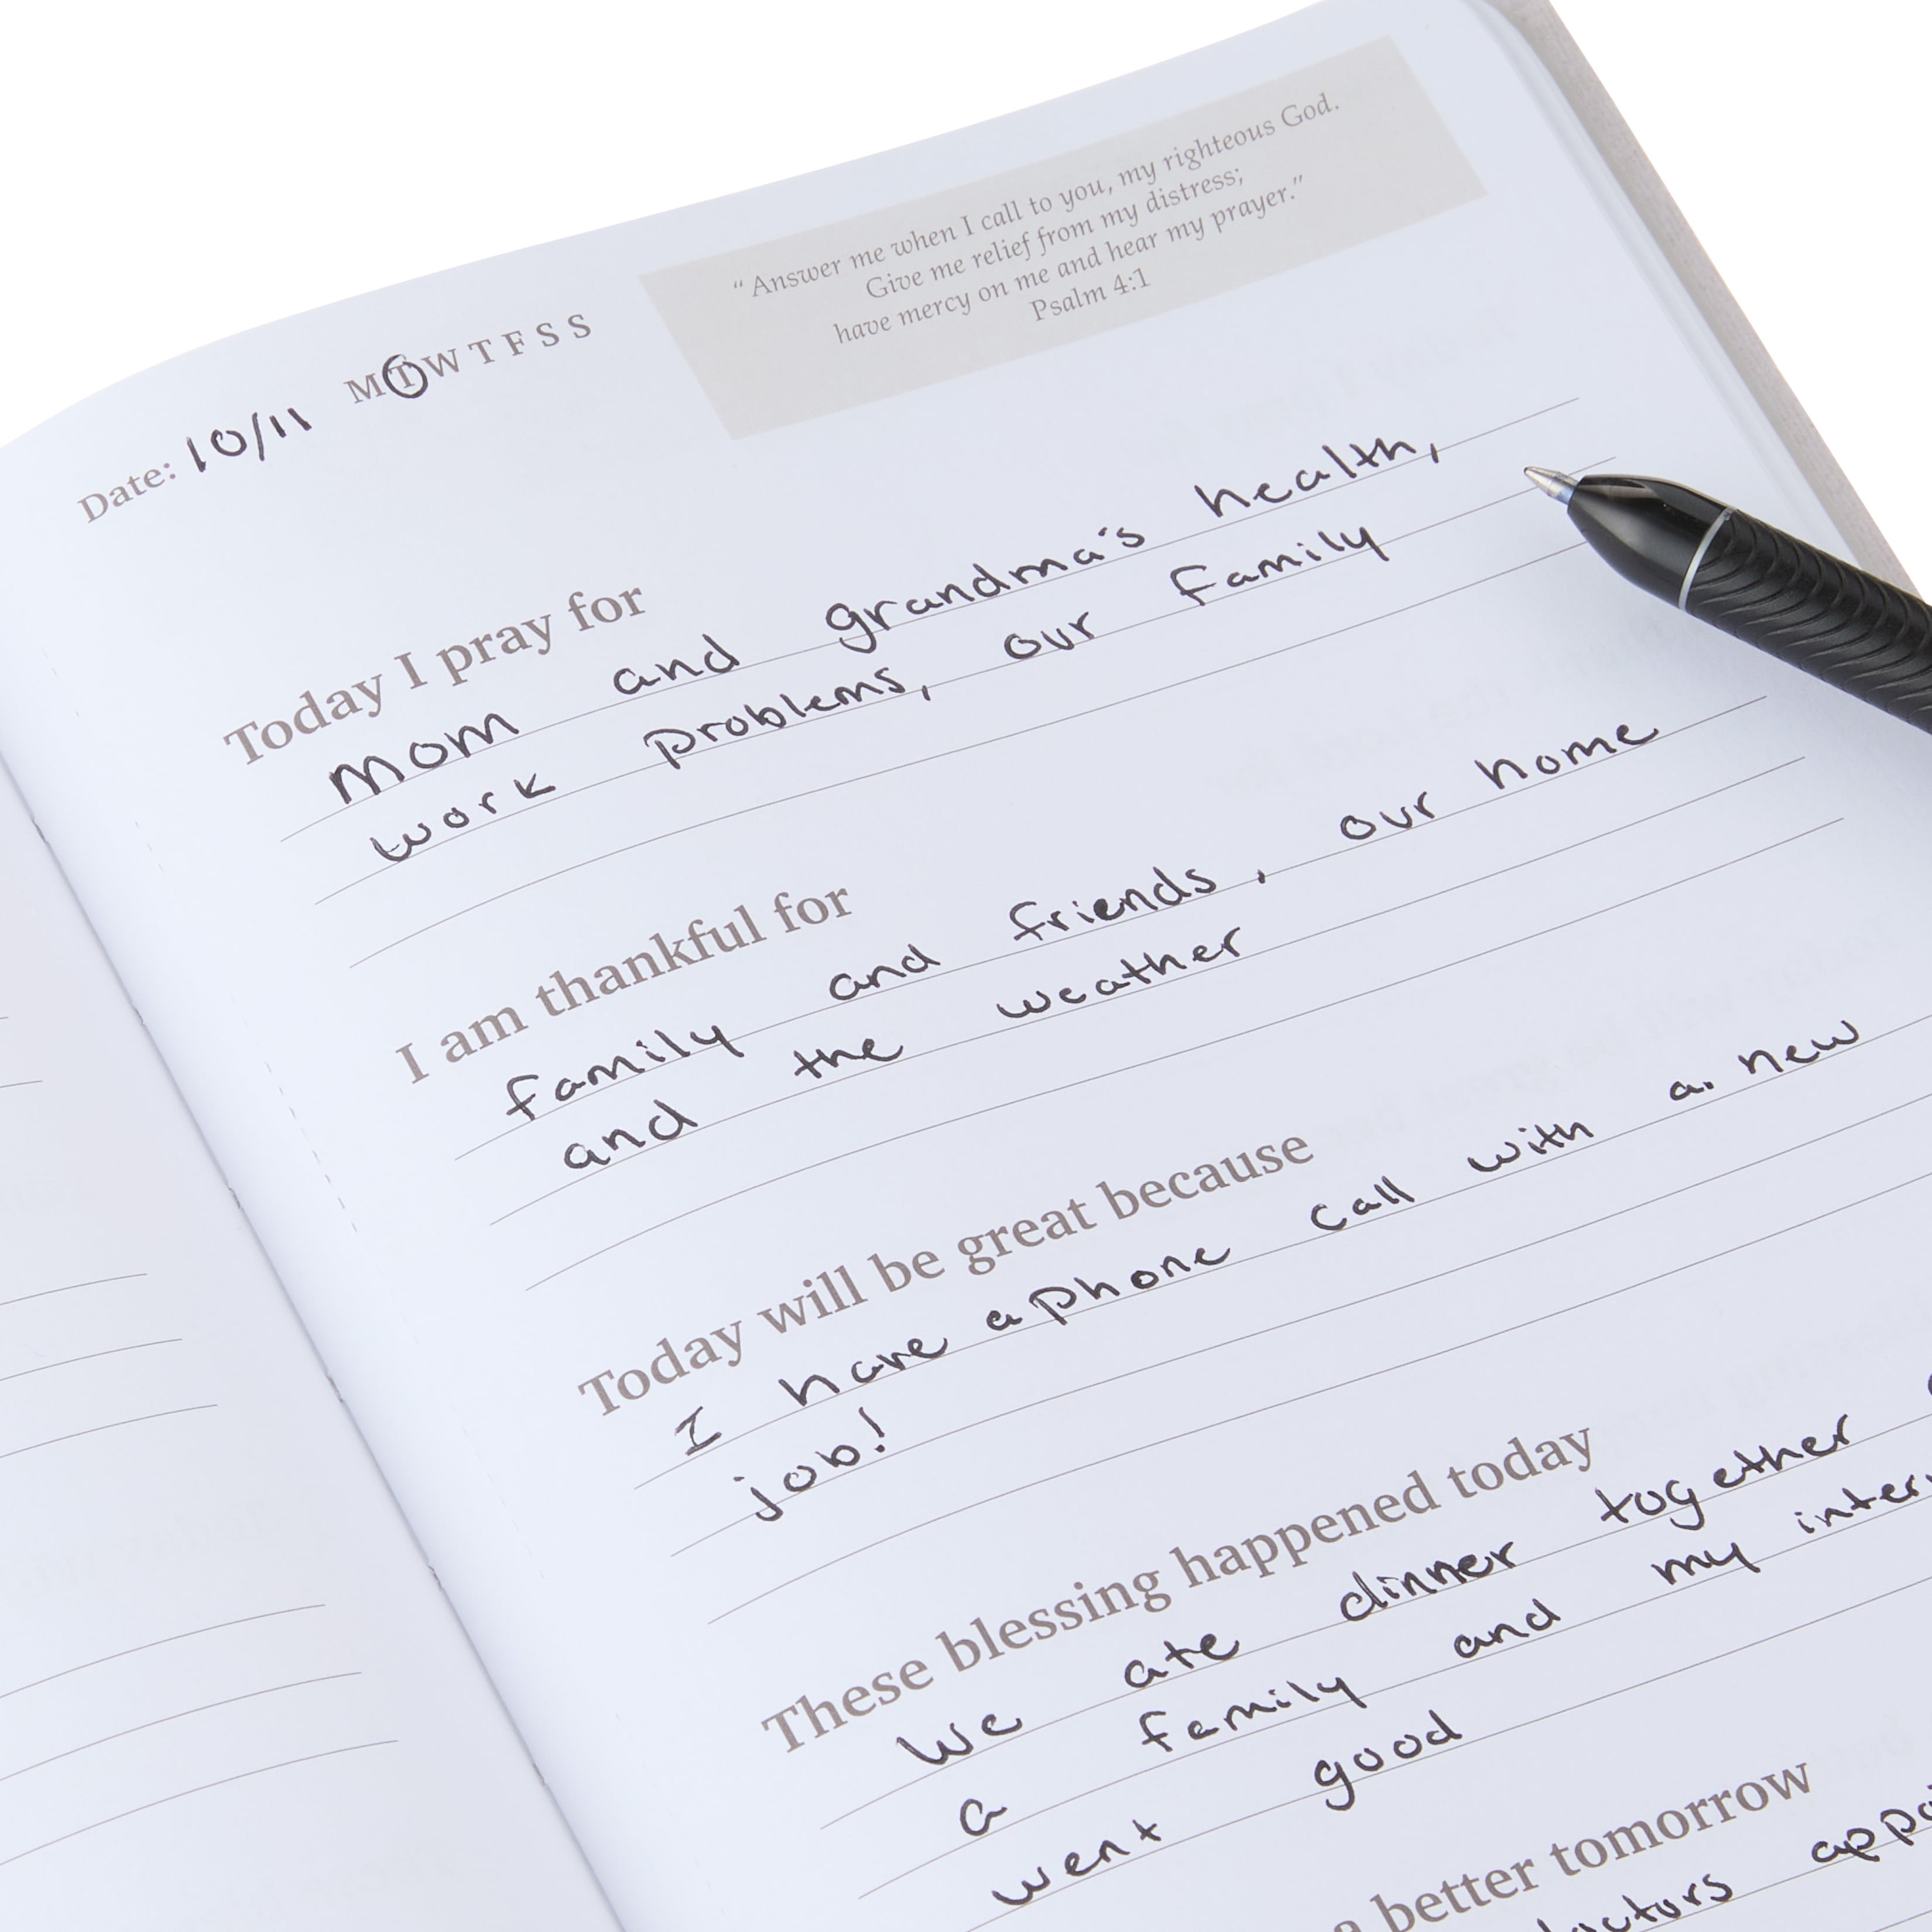 Date: 10/11 M T W T F S S
"Answer me when I call to you, my righteous God.
Give me relief from my distress;
have mercy on me and hear my prayer."
Psalm 4:1
Today I pray for
Mom and grandma's health,
work problems, our family
I am thankful for
family and friends, our home
and the weather
Today will be great because
I have a phone call with a new
job!
These blessing happened today
We ate dinner together
a family and my
went good
better tomorrow